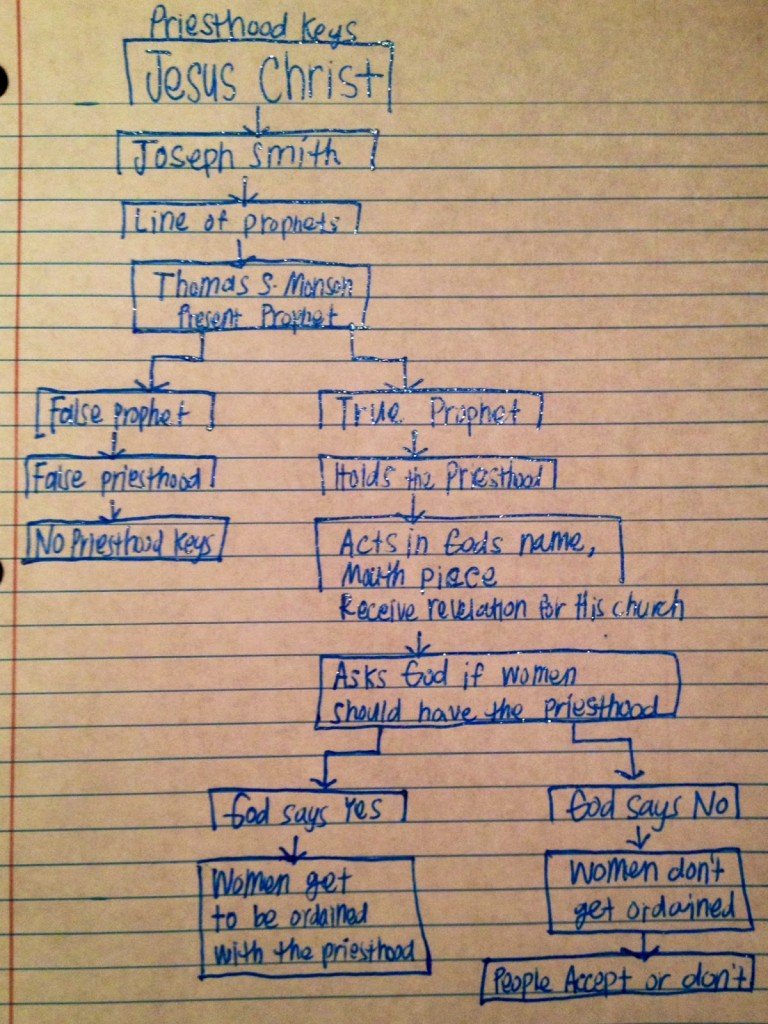 Priesthood Keys
Jesus Christ
Joseph Smith
Line of prophets
Thomas S. Monson
Present Prophet
False prophet
True Prophet
False priesthood
Holds the Priesthood
No Priesthood Keys
Acts in Gods name,
Mouth piece
Receive revelation for His church
Asks God if women
should have the priesthood
God says Yes
God says No
Women get
to be ordained
with the priesthood
Women don't
get ordained
People Accept or don't